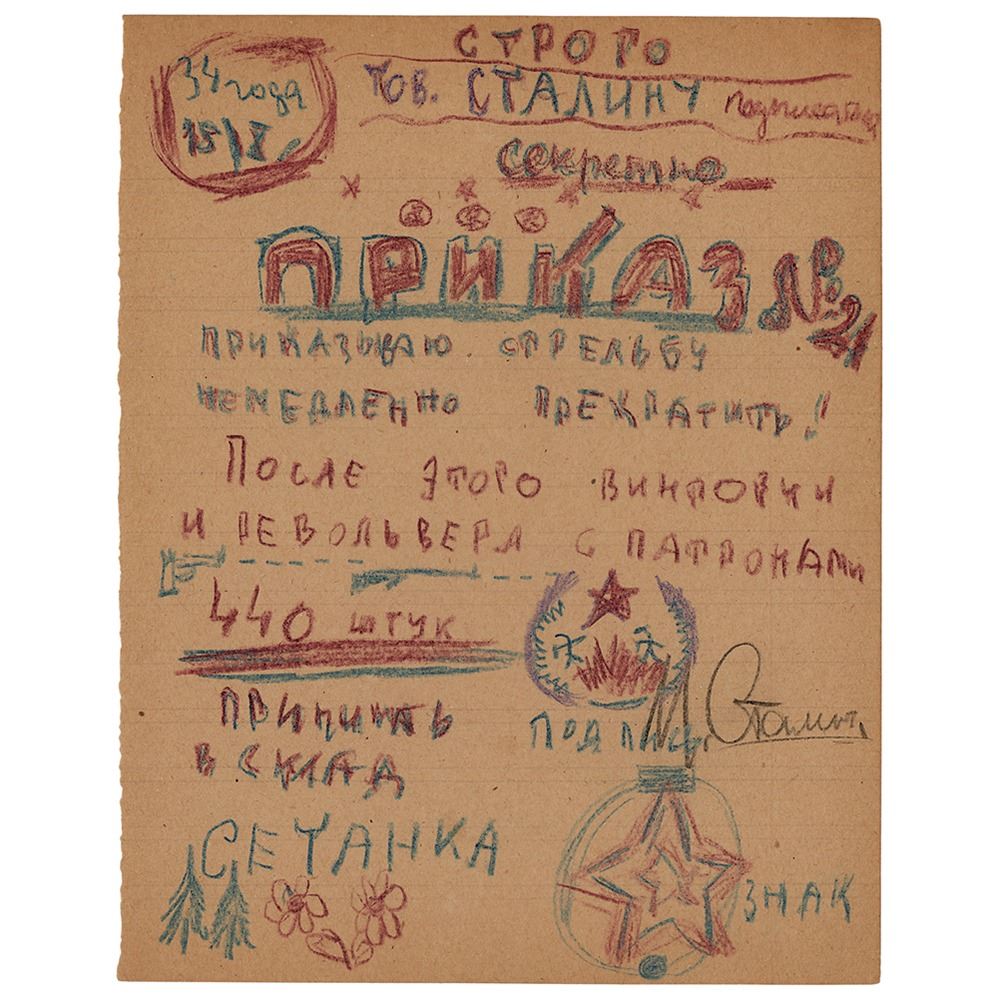 СТРОГО
34 года
ТОВ. СТАЛИНУ подписать
секретно
ПРИКАЗ №21
ПРИКАЗЫВАЮ СТРЕЛЬБУ
НЕМЕДЛЕННО ПРЕКРАТИТЬ!
ПОСЛЕ ЭТОГО ВИНТОВКИ
И РЕВОЛЬВЕРА С ПАТРОНАМИ
440 ШТУК
ПОДПИСЬ И. Сталин.
В СКЛАД
СЕТАНКА
ЗНАК